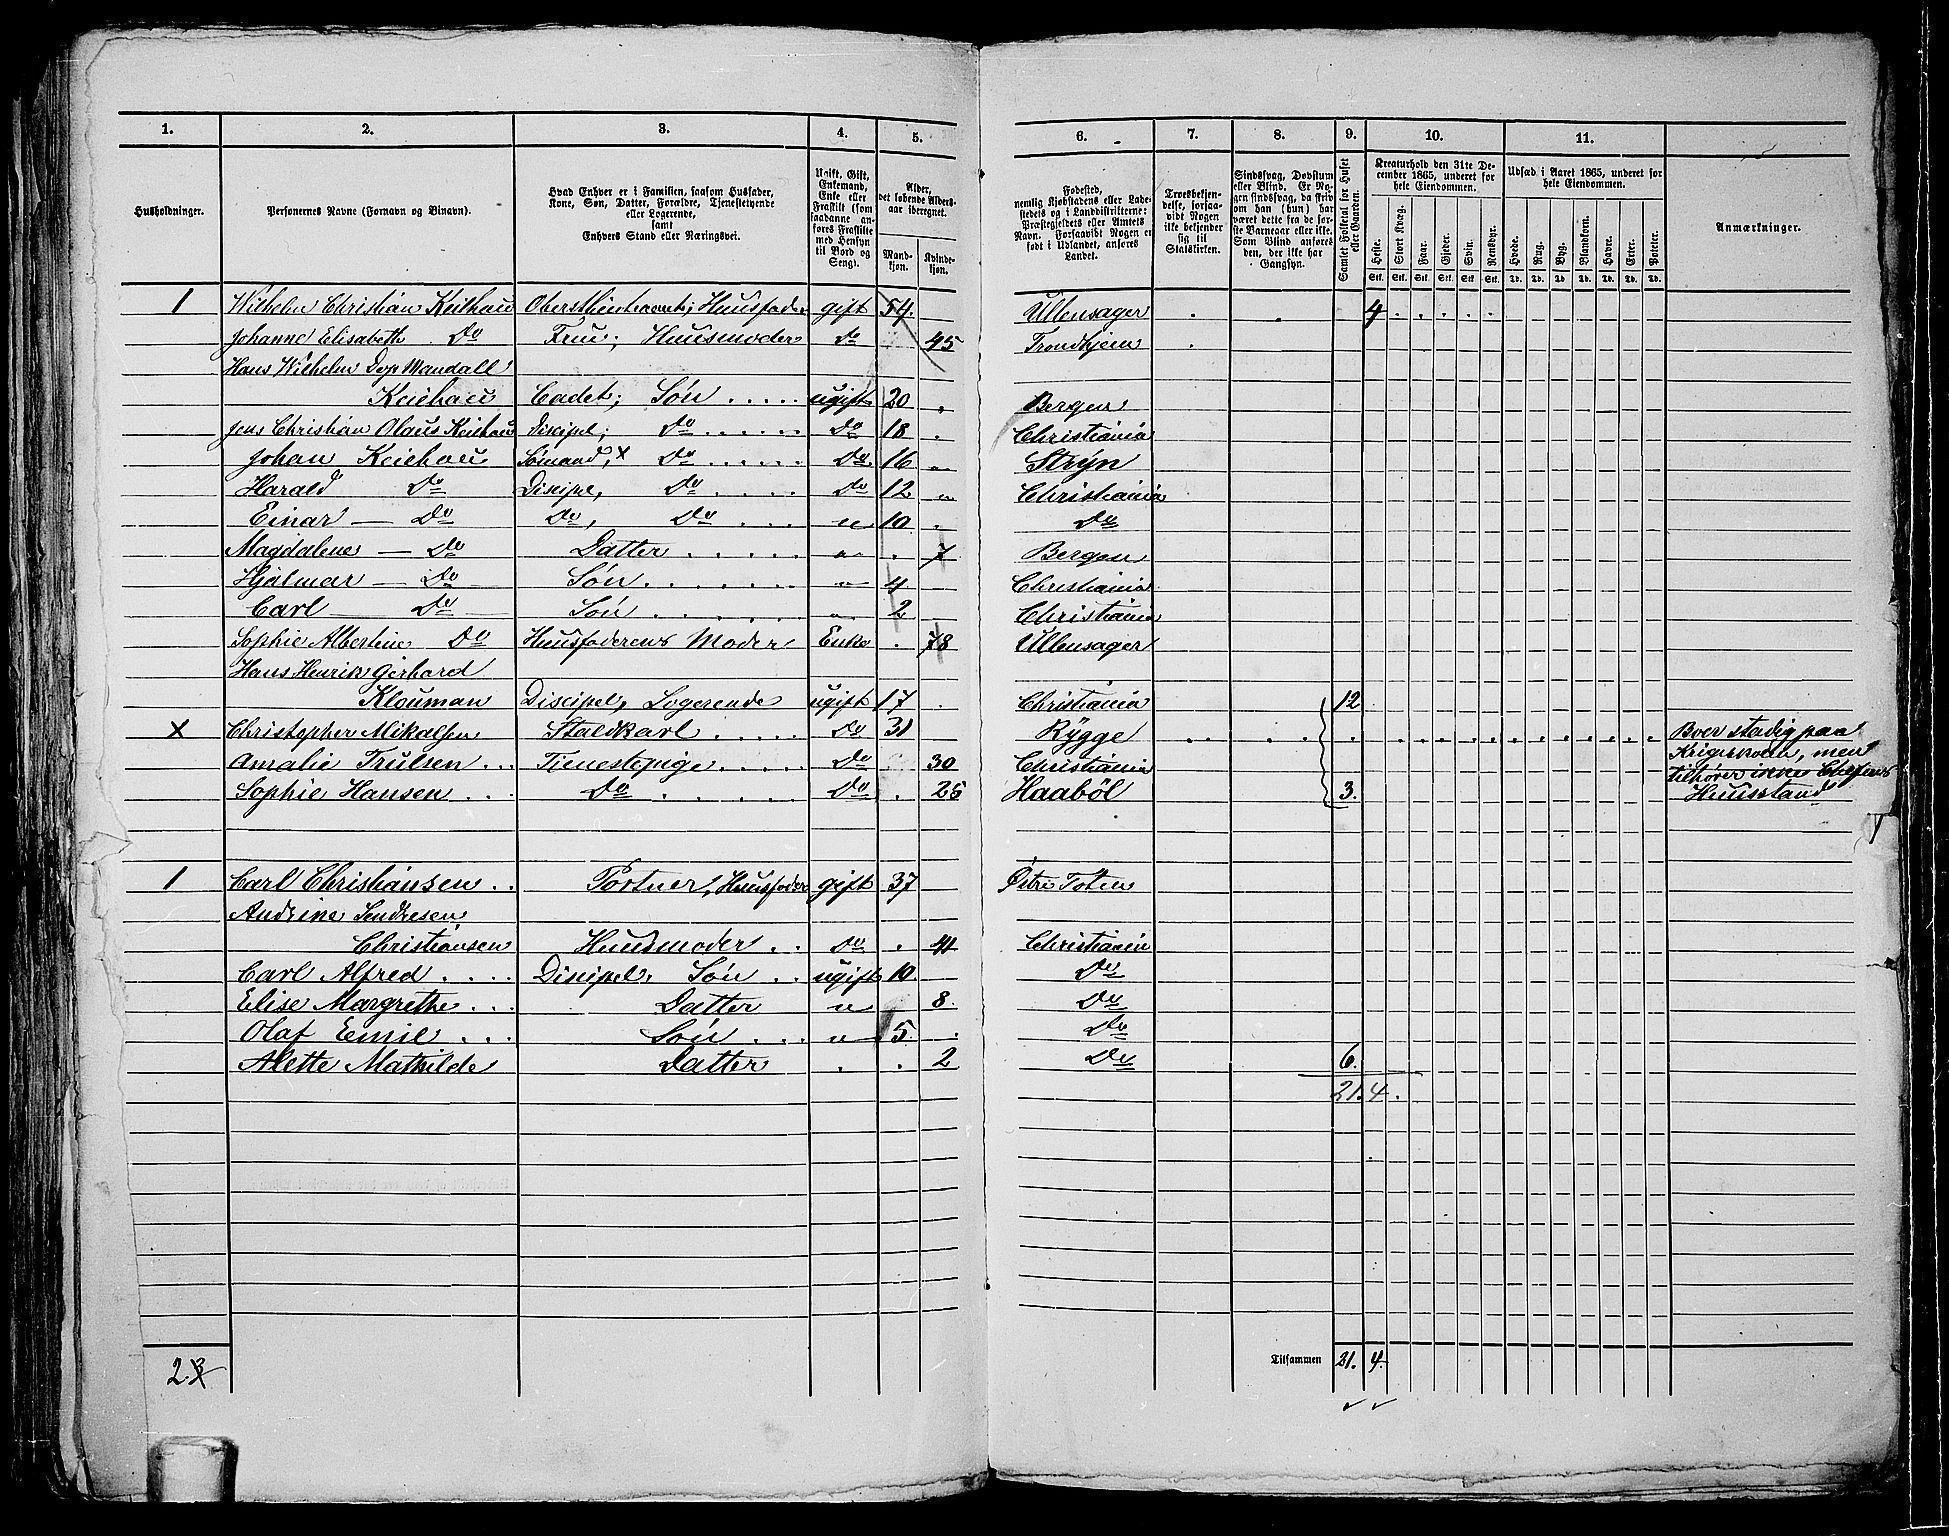 1. 2. 3. 4. 5. 6. 7. 8. 9. 10. 11.
Husholdninger.
Personernes Navne (Fornavn og Binavn).
Hvad Enhver er i Familien, saasom Husfader,
Kone, Søn, Datter, Forældre, Tjenestetyende
eller Logerende,
samt
Enhvers Stand eller Næringsvei.
Ugift, Gift,
Enkemand,
Enke eller
Fraskilt (som
saadanne an-
føres Fraskilte
med Hensyn
til Bord og
Seng).
Alder,
det løbende Alders-
aar iberegnet.
Mand-
kjøn.
Kvinde-
kjøn.
Fødested,
nemlig Kjøbstadens eller Lade-
stedets og i Landdistrikterne:
Præstegjeldets eller Amtets
Navn. Forsaavidt Nogen er
født i Udlandet, anføres
Landet.
Troesbekjen-
delse, forsaa-
vidt Nogen
ikke bekjender
sig til
Statskirken.
Sindssvag, Døvstum
eller Blind. Er No-
gen sindssvag, da skriv
om han (hun) har
været dette fra de før-
ste Barneaar eller ikke.
Som Blind anføres
den, der ikke har
Gangsyn.
Samlet Folketal for Huset
eller Gaarden.
Kreaturhold den 31te De-
cember 1865, underet for
hele Eiendommen.
Heste. Stort Kvæg. Faar. Gjeder. Svin. Rensdyr.
Stk. Stk. Stk. Stk. Stk. Stk.
Udsæd i Aaret 1865, underet for
hele Eiendommen.
Hvede. Rug. Byg. Blandkorn. Havre. Erter. Poteter.
Td. Td. Td. Td. Td. Td. Td.
Anmærkninger.
1 Wilhelm Christian Keilhau Oberstlieutenant; Huusfader gift 54. Ullensager 4
Johanne Elisabeth Do Frue; Huusmoder Do 45 Trondhjem
Hans Wilhelm Mandall
Keilhau Cadet; Søn ugift 20 Bergen
Jens Christian Olaus Keilhau Discipel; Do Do 18 Christiania
Johan Keilhau Sømand, x Do Do 16 Stryn
Harald Do Discipel, Do Do 12 Christiania
Einar — Do Do, Do " 10 Do
Magdalene — Do Datter " 7 Bergen
Hjalmar — Do Søn " 4 Christiania
Carl — Do Søn " 2 Christiania
Sophie Albertine Do Huusfaderens Moder Enke 78 Ullensager
Hans Henrik Gerhard
Klouman Discipel, Logerende ugift 17 Christiania 12
x Christopher Mikalsen Staldkarl Do 31 Rygge Boer stadig paa
Amalie Trulsen Tienestepige Do 30 Christiania Krigsskolen, men
tilhører ikke Chefens
Sophie Hansen Do Do 25 Haabøl 3. Huusstand
1 Carl Christiansen Portner, Huusfader gift 37 Østre Toten
Andrine Sendresen
Christiansen Huusmoder Do 41 Christiania
Carl Alfred Discipel, Søn ugift 10 Do
Elise Margrethe Datter " 8. Do
Olaf Emil Søn " 5. Do
Alette Mathilde Datter 2 Do 6.
21. 4.
2 3
Tilsammen 21. 4.